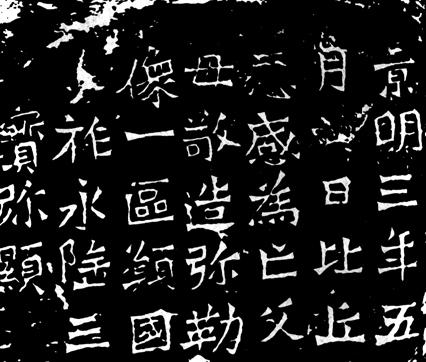 景明三年五
月日比丘
惠感為亡父
母敬造弥勒
像一區願國
祚永隆三
寶弥顯